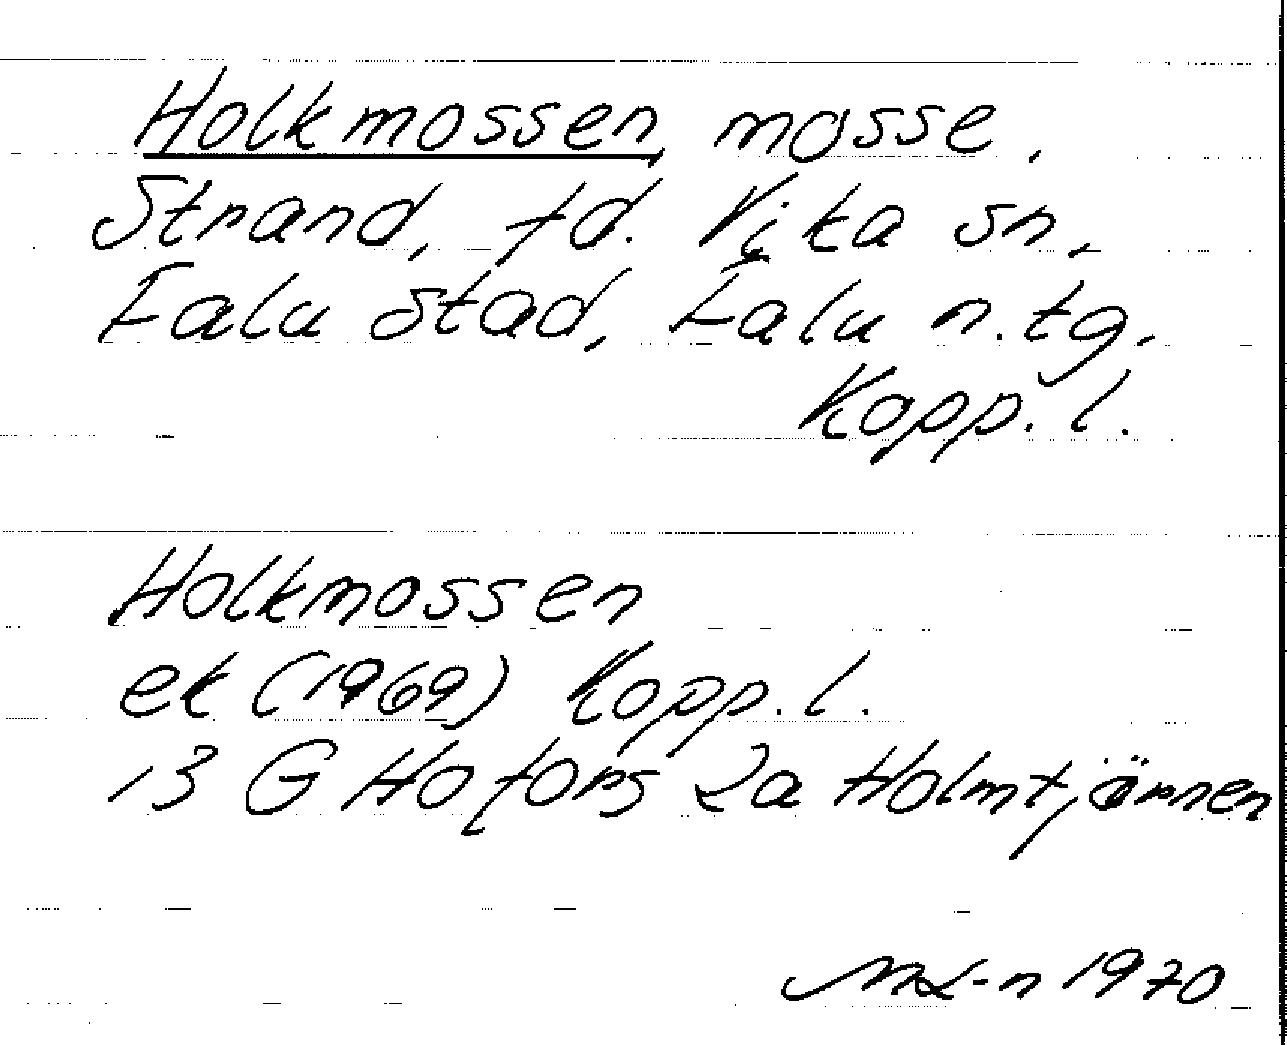 Holkmossen, mosse,
Strand, fd. Vika sn,
Falu stad, Falu n.tg,
Kopp. l.
Holkmossen
ek (1969) Kopp. l.
13 G Hofors 2a Holmtjärnen
ML-n 1970